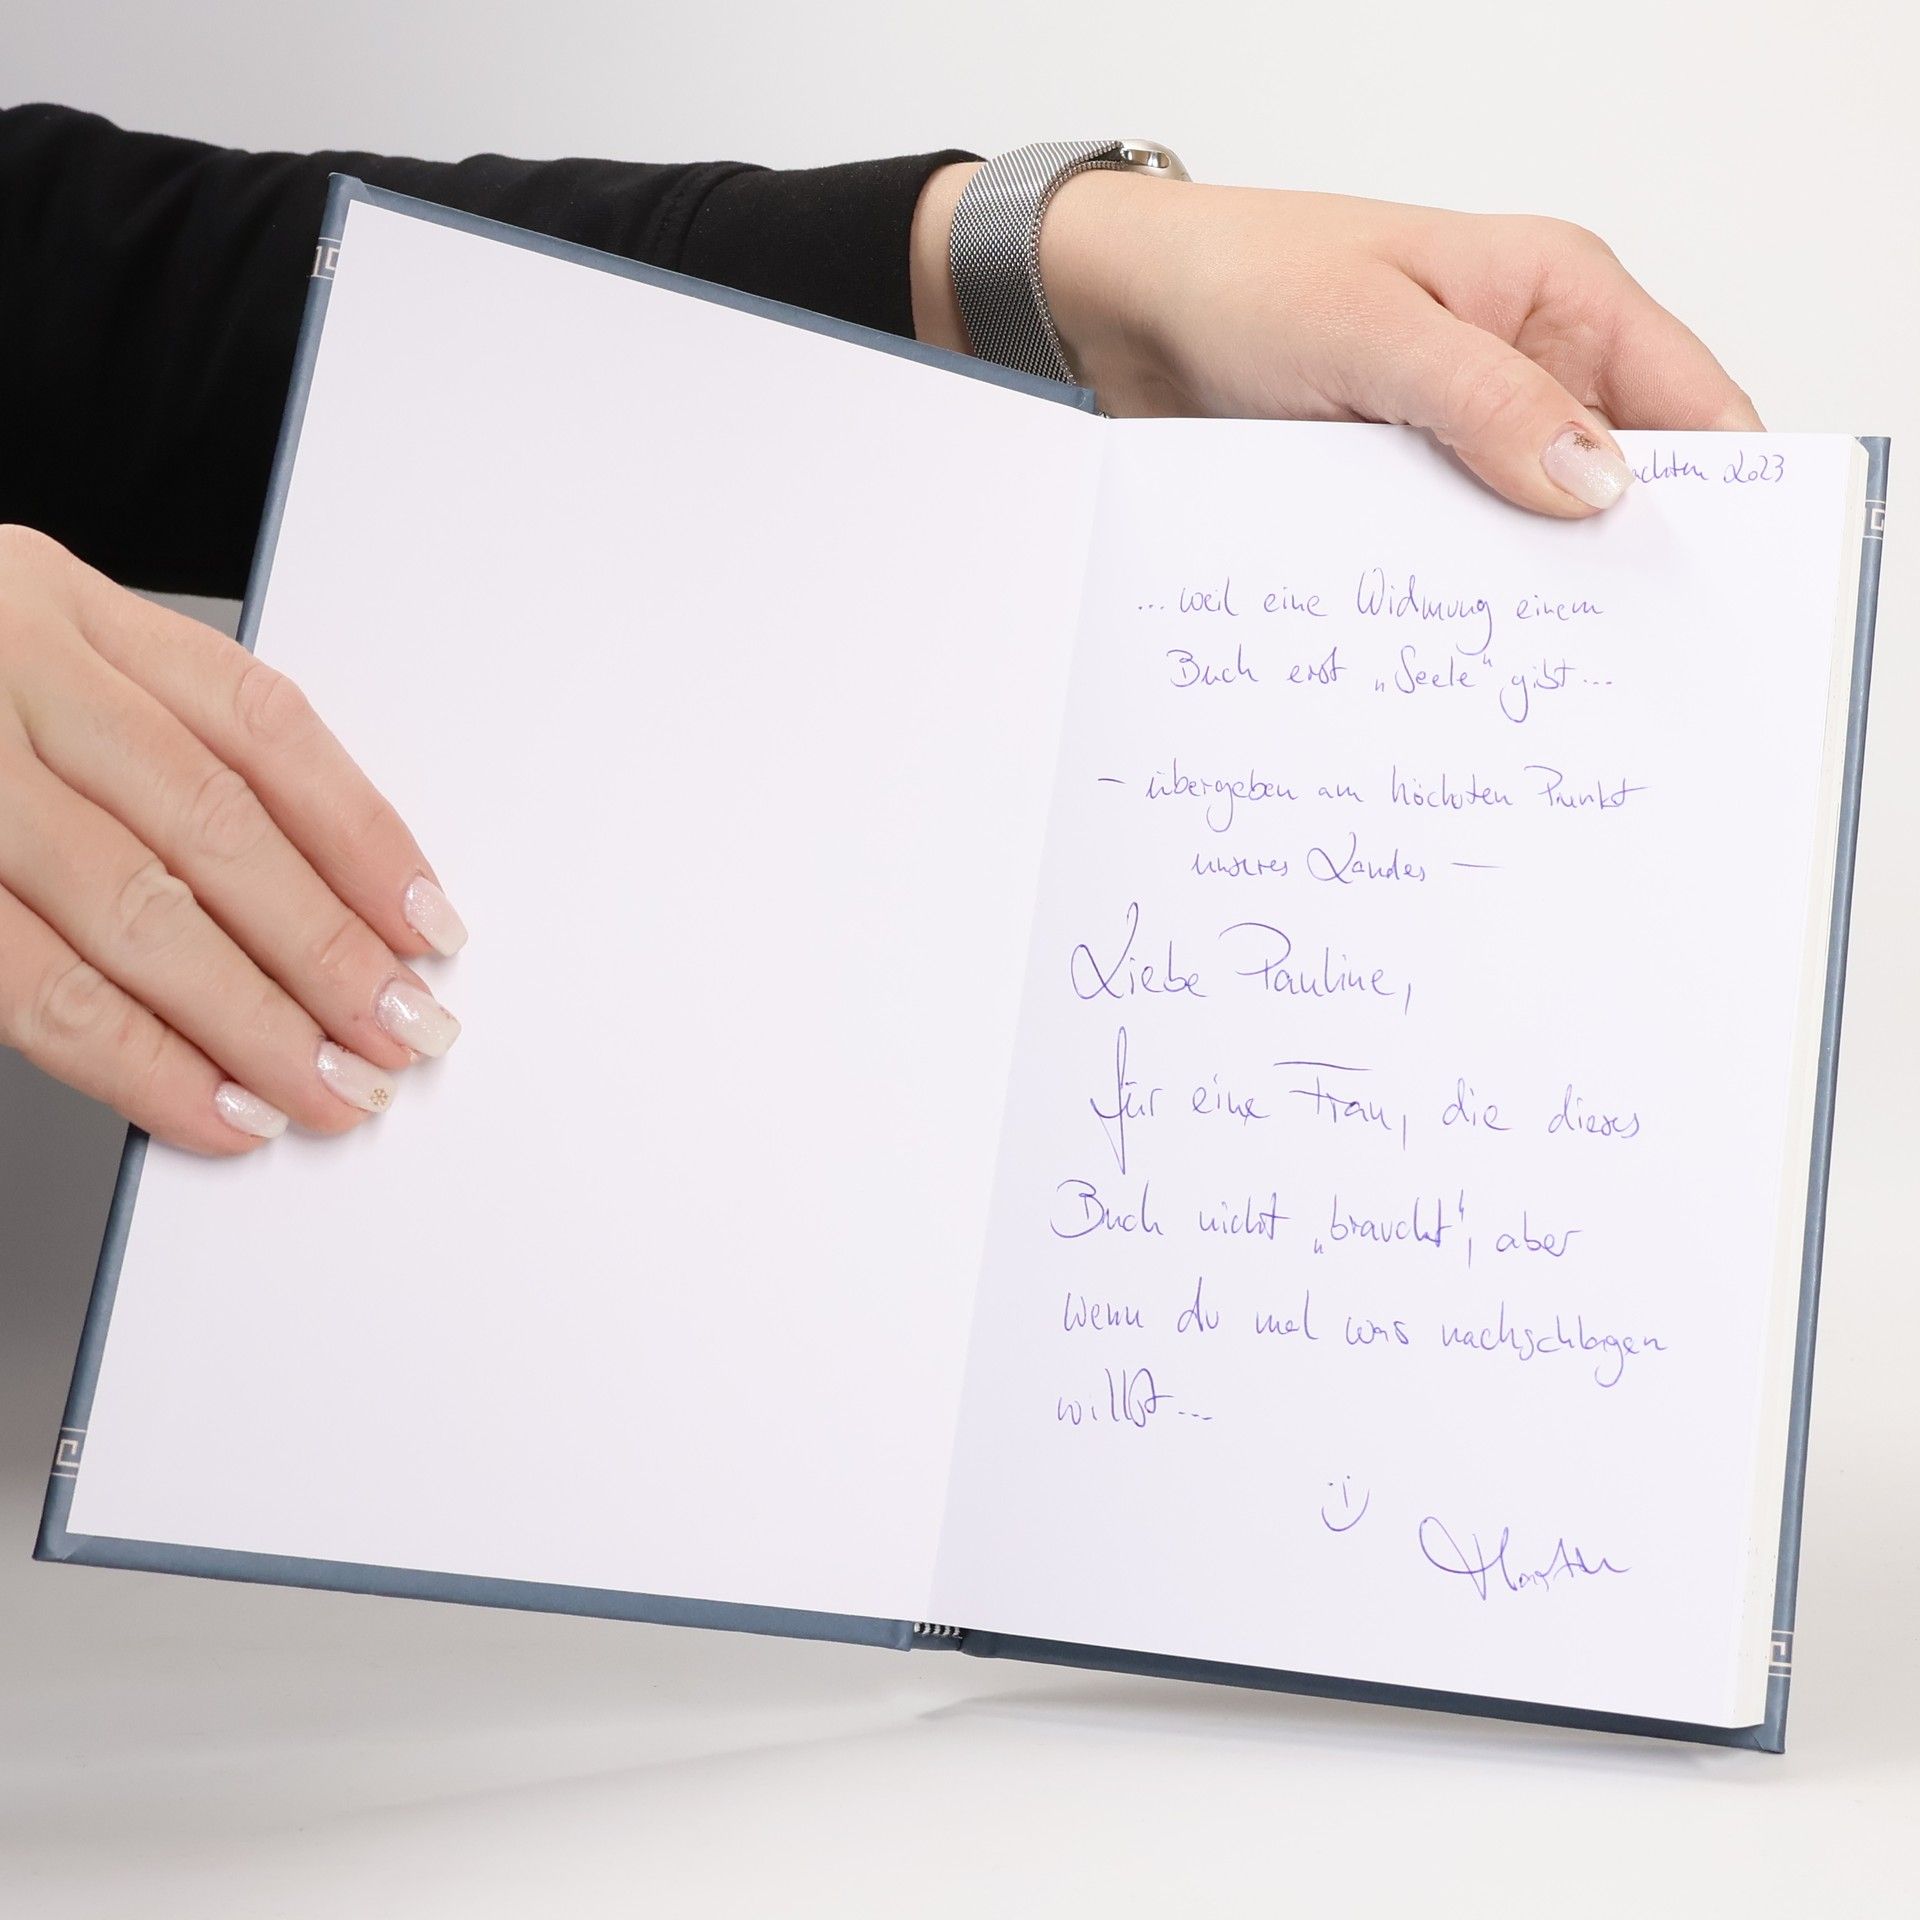 achten 2023
... weil eine Widmung einem
Buch erst „Seele“ gibt ...
- übergeben am höchsten Punkt
unseres Landes -
Liebe Pauline,
für eine Frau, die dieses
Buch nicht „braucht“, aber
wenn du mal was nachschlagen
willst ...
:)